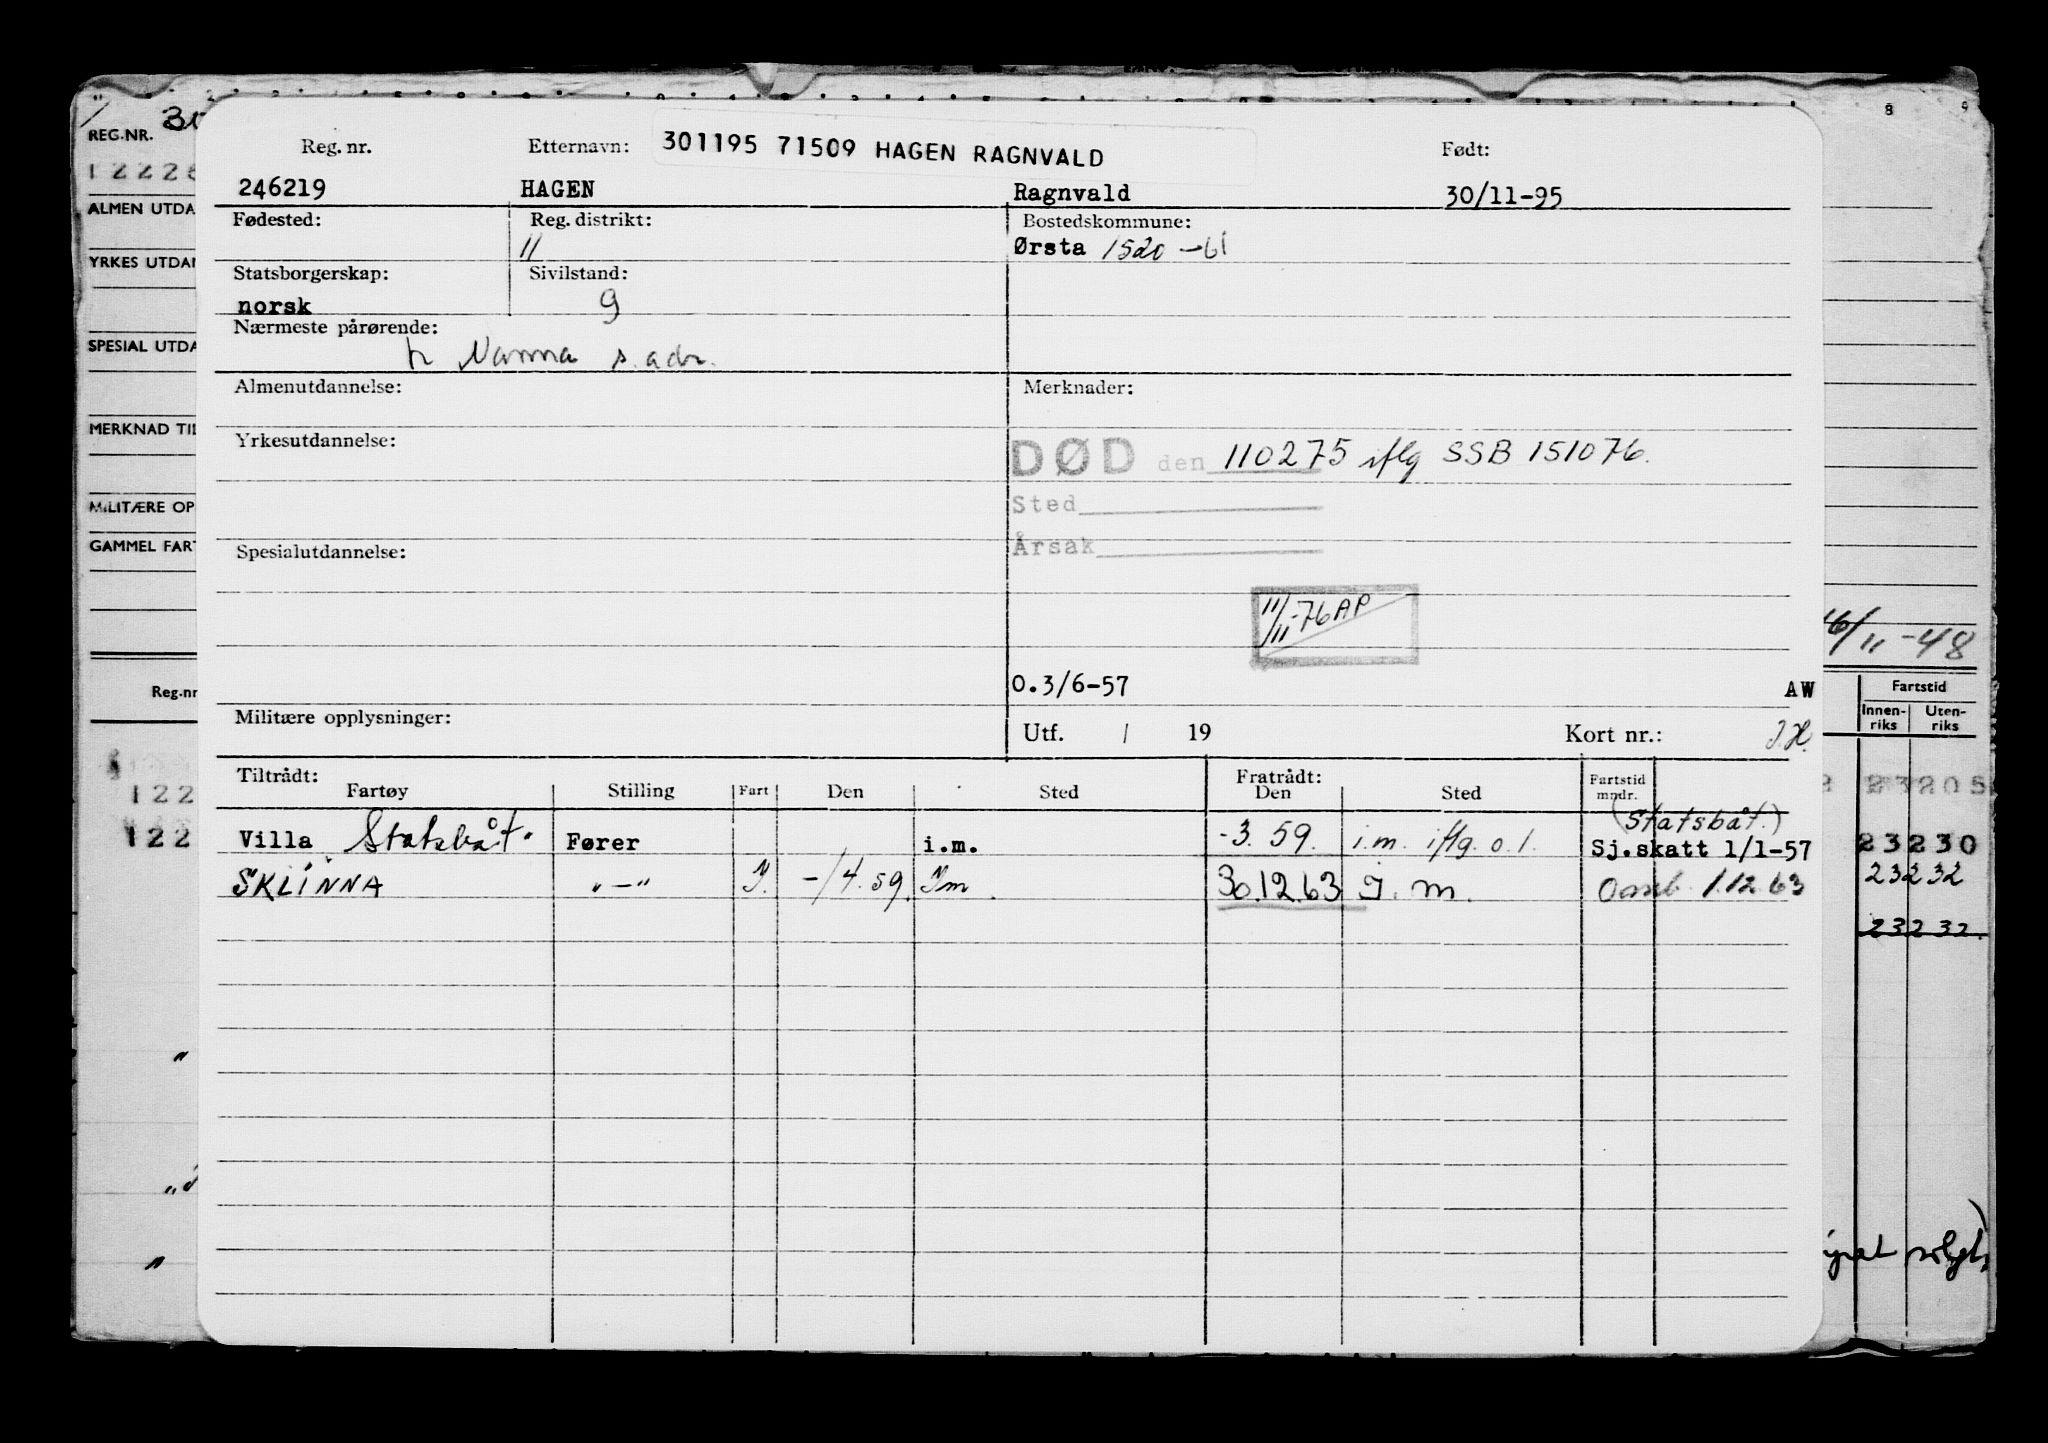 301195 71509 HAGEN RAGNVALD
Reg. nr. Etternavn: Født:
246219 HAGEN Ragnvald 30/11-95
Fødested: Reg. distrikt: Bostedskommune:
11 Ørsta 1520 -61
Statsborgerskap: Sivilstand:
norsk g
Nærmeste pårørende:
h Nanna s. adr.
Almenutdannelse: Merknader:
Yrkesutdannelse:
DØD den 110275 iflg SSB 151076.
Sted
Årsak
Spesialutdannelse:
11/11-76 AP
0.3/6-57 AW
Militære opplysninger:
Utf. / 19 Kort nr.: J.H.
Tiltrådt: Fratrådt: Fartstid
Fartøy Stilling Fart Den Sted Den Sted mndr.
(Statsbåt.)
Villa Statsbåt. Fører i.m. -3. 59. i.m. iflg. o.l. Sj.skatt 1/1-57
SKLINNA "-" I. -/4.59. Im. 30.12.63 I. m. 1.12.63
REG.NR.
1222
ALMEN UTDA
YRKES UTDAN
SPESIAL UTDA
MERKNAD TIL
MILITÆRE OP
GAMMEL FART
Reg.nr
122
122
"
"
8 9
16/11-48
Fartstid
Innen-riks Uten-riks
23205
23230
23232
23232.